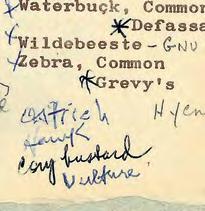 Waterbuck, Common
*Defassa
Wildebeeste - GNU
Zebra, Common
*Grevy's
Ostrich
Hyen
Hawk
Cory bustard
Vulture